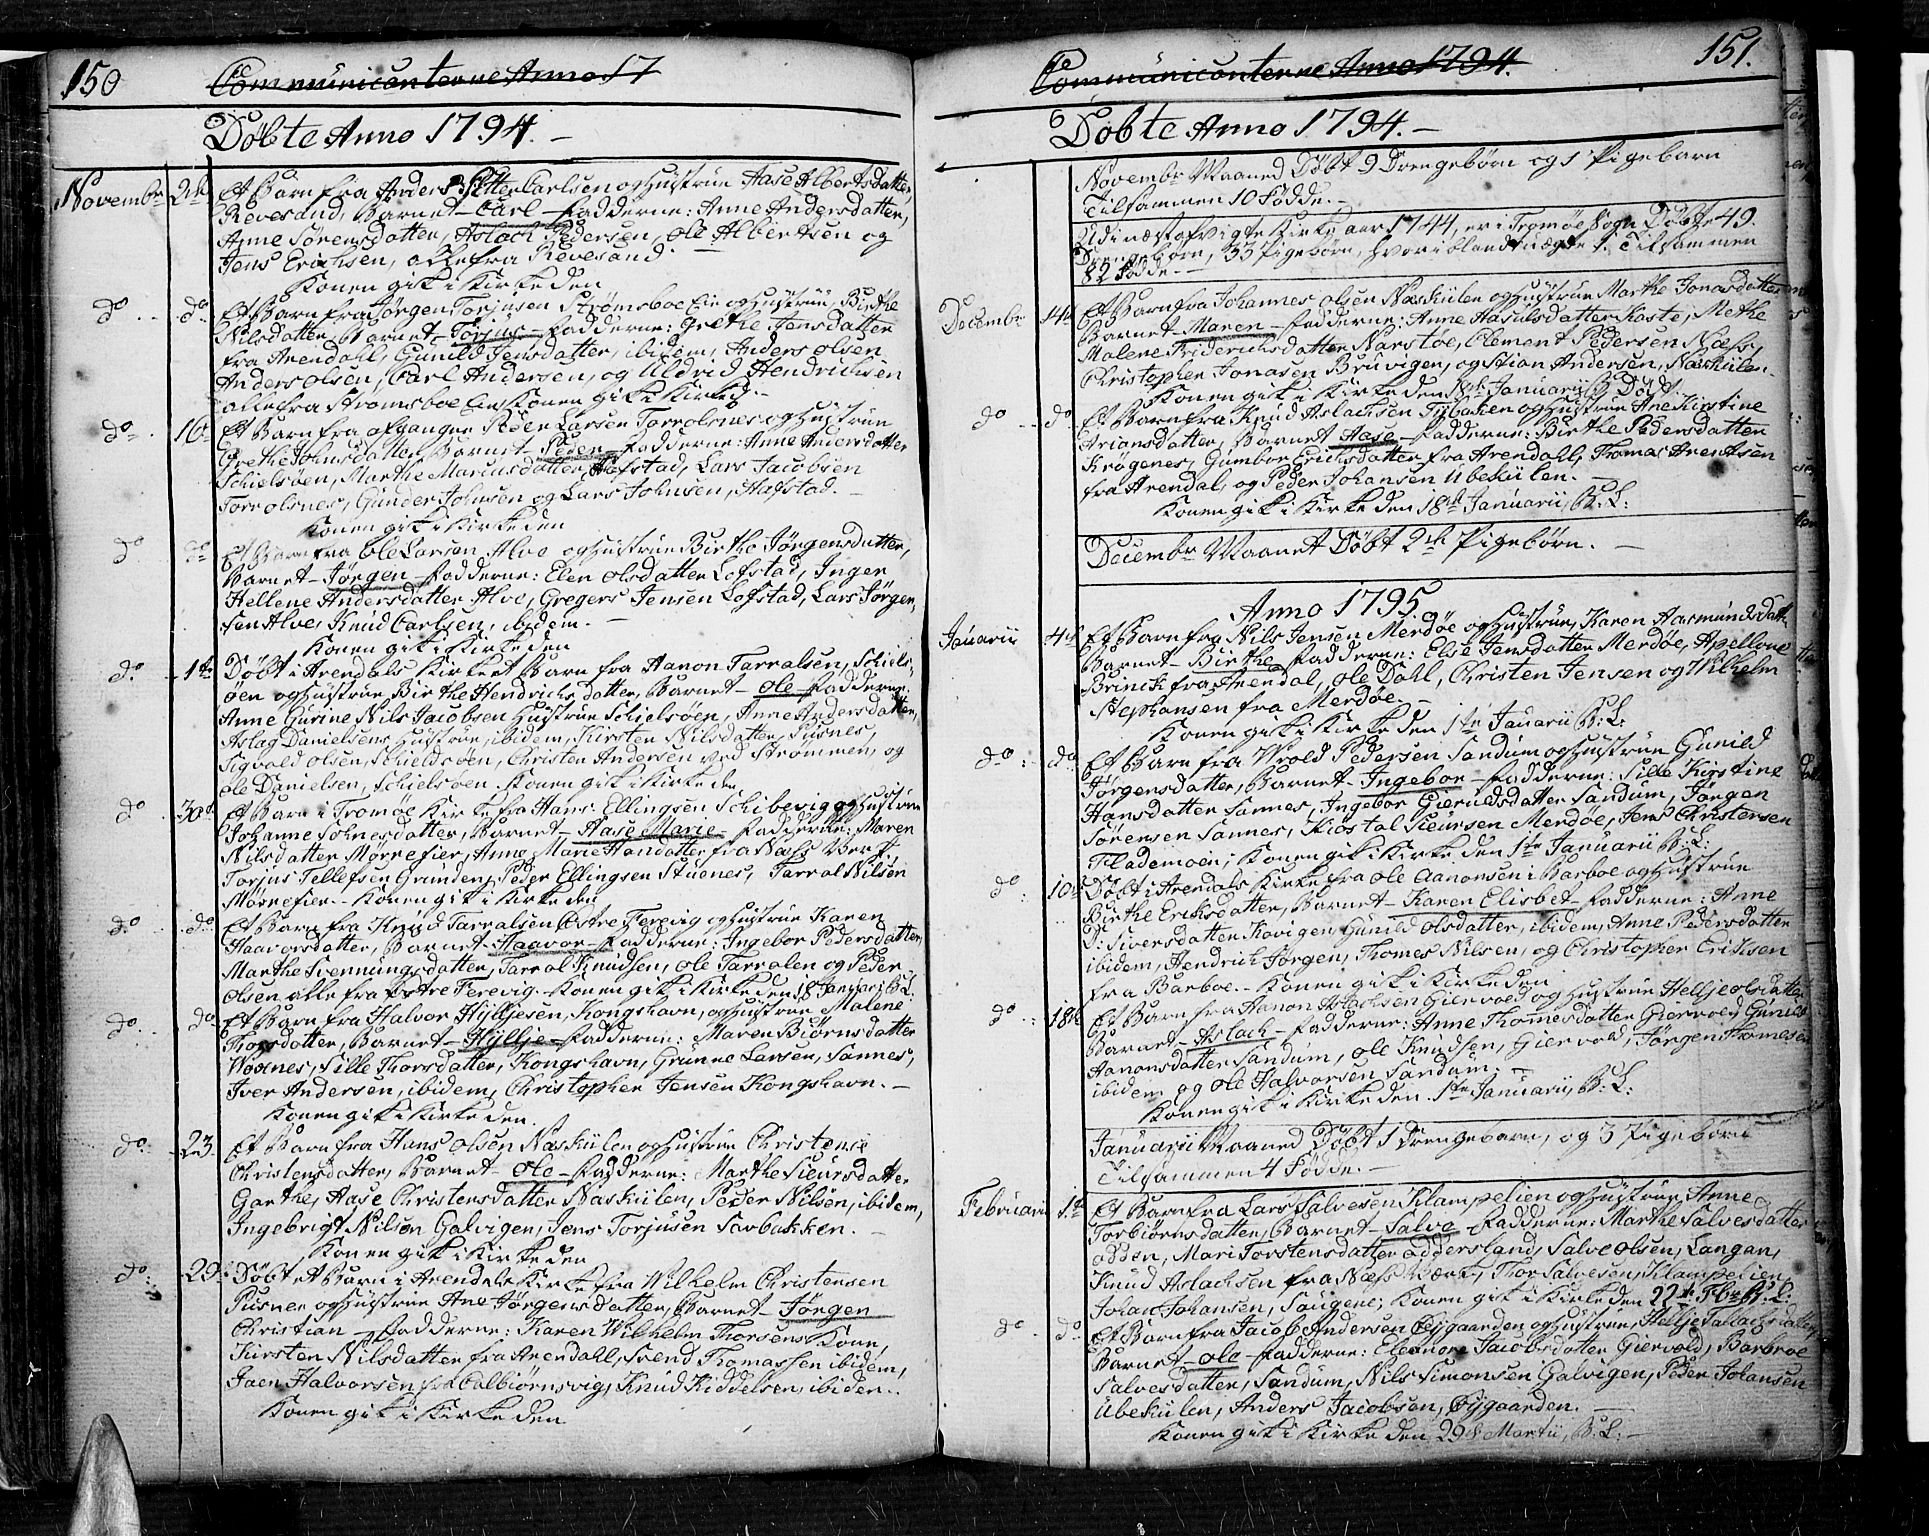 150
Communicanterne Anno 17
Døbte Anno 1794.
Novembr 2de Et Barn fra Anders Petter Carlsen og Hustrue Aase Albertsdatter,
Revesand, Barnet Carl Fadderne: Anne Andersdatter,
Anne Sørensdatter, Aslach Pedersen, Ole Albertsen og
Jens Erichsen, alle fra Revesand.
Konen gik i Kirke den
do do Et Barn fra Jørgen Torjusen Strømsboe Eie og Hustrue, Birthe
Nilsdatter, Barnet Torjus Fadderne: Grethe Jensdatter
fra Arendahl, Gunild Jensdatter, ibidem, Anders Olsen
Anders Olsen, Carl Andersen, og Aldrid Hendrichsen
alle fra Strømsboe Eie, Konen gik i Kirke d.
do 16 Et Barn fra afgangne Peder Larsen Torrolsnes og Hustrue
Grethe Johnsdatter, Barnet Peder Fadderne: Anne Andersdatter
Schielsøen, Marthe Marcusdatter, Hafstad, Lars Jacobsen
Torrolsnes, Gunder Johnsen og Lars Johnsen, Hafstad.
Konen gik i Kirke den
do do Et Barn fra Ole Larsen Alve og Hustrue Birthe Jørgensdatter,
Barnet Jørgen Fadderne: Elen Olsdatter Lofstad, Inger
Hellene Andersdatter Alve, Gregers Jensen Lofstad, Lars Jørgen-
sen Alve, Knud Carlsen, ibidem.
Konen gik i Kirke den
do 1te Døbt i Arendals Kirke et Barn fra Aanon Tarralsen, Schiels-
øen og Hustrue Birthe Hendrichsdatter, Barnet Ole Fadderne:
Anne Gurine Nils Jacobsen Hustrue Schielsøen, Anne Andersdatter,
Aslag Danielsens Hustrue, ibidem, Kirsten Nilsdatter, Pusnes,
Sigvald Olsen, Schieldsøen, Christen Andersen ved Strømmen, og
Ole Danielsen, Schielsøen. Konen gik i Kirke den
do 30d Et Barn i Tromøe Kirke fra Hans Ellingsen Schibevig og Hustrue
Johanne Solvesdatter, Barnet Aase Marie Fadderne: Maren
Nilsdatter Mørrefier, Anne Marie Handatter fra Næss Verk
Torjus Tellefsen Grunden, Peder Ellingsen Stuenes, Tarrol Nilsen
Mørrefier. Konen gik i Kirke den
do do Et Barn fra Knud Tarralsen Østre Ferevig og Hustrue Karen
Haavorsdatter, Barnet Haavor Fadderne: Ingebor Pedersdatter,
Marthe Svennungsdatter, Tarrol Knudsen, Ole Tarralen og Peder
Olsen alle fra Østre Ferevig. Konen gik i Kirke den 18 Januari B: L:
do do Et Barn fra Halvor Hylljesen, Kongshavn, og Hustrue Malene
Thorsdatter, Barnet Hyllje Fadderne: Maren Biørnsdatter
Voxnes, Sille Thorsdatter, Kongshavn, Grunne Larsen, Sannes,
Iver Andersen, ibidem, Christopher Jensen Kongshavn.
Konen gik i Kirke den.
do 23 Et Barn fra Hans Olsen Naskiilen og Hustrue Christense
Christensdatter, Barnet Ole Fadderne: Marthe Sieursdatter
Garthe, Aase Christensdatter Naskiilen, Peder Nilsen, ibidem,
Ingebrigt Nilsen Galvigen, Jens Torjusen Sarbakken.
Konen gik i Kirke den
do 29 Døbt et Barn i Arendals Kirke fra Wilhelm Christensen
Pusnes og Hustrue Ane Jørgensdatter, Barnet Jørgen
Christian Fadderne: Karen Wilhelm Thorsens Kone,
Kirsten Nilsdatter fra Arendahl, Svend Thomassen ibidem,
Jaen Halvorsen fra Colbiørnsvig, Knud Kiddelsen, ibidem.
Konen gik i Kirke den
151.
Communicanterne Anno 1794.
Døbte Anno 1794.
Novembr Maaned Døbt 9 Drengebørn og 1 Pigebarn
Tilsammen 10 Fødde.
Udi næstafvigte Kirke aar 1744, er i Tromøe Sogn Døbte 49.
Drengebørn, 33 Pigebørn, hvoriblandt uægte 1. Tilsammen
82 Fødde.
Decembr 14d Et Barn fra Johannes Olsen Naskiilen og Hustrue Marthe Jonasdatter
Barnet Maren Fadderne: Anne Aasulsdatter Kaste, Methe
Malene Friderichsdatter Narstøe, Clement Pedersen Næss,
Christopher Jonasen Bruvigen, og Stian Andersen, Naskiilen.
Konen gik i Kirke den 18de Januarii B: L:
do do Et Barn fra Knud Aslachsen Tybaken og Hustrue Ane Kirstine
Ariansdatter, Barnet Aase Fadderne: Birthe Pedersdatter
Krøgenes, Gumbor Erichsdatter fra Arendahl, Thomas Arentsen
fra Arendal, og Peder Johansen Ubekiilen.
Konen gik i Kirke den 18de Januarii, B: L:
Decembr Maanet Døbt 2de Pigebørn.
Anno 1795
Januarii 4d Et Barn fra Nils Jensen Merdøe og Hustrue, Karen Aasmundsdatt.
Barnet Birthe Fadderne: Elsie Jensdatter Merdøe, Apellone
Brinck fra Arendal, Ole Dahl, Christen Jensen og Wilhelm
Stephansen fra Merdøe.
Konen gik i Kirke den 1te Januarii B: L:
do do Et Barn fra Wrold Pedersen Sandum og Hustrue Gunild
Jørgensdatter, Barnet Ingebor Fadderne: Sille Kirstine
Hansdatter Sannes, Ingebor Gierulsdatter Sandum, Jørgen
Sørensen Sannes, Kiøstal Sieursen Merdøe, Jens Christensen
Flademoen; Konen gik i Kirke den 1te Januarii B: L:
do 10d Døbt i Arendals Kirke fra Ole Aanonsen i Barboe og Hustrue
Birthe Eriksdatter, Barnet Karen Elisbet Fadderne: Anne
D: Siversdatter Kavigen, Gunild Olsdatter, ibidem, Anne Pedersdatter
ibidem, Hendrich Jørgen, Thomes Nilsen, og Christopher Eriksen
fra Barboe. Konen gik i Kirke den
do 18d Et Barn fra Aanon Aslachsen Giervold og Hustrue Hellje Olsdatter
Barnet Aslach Fadderne: Anne Thomesdatter Giervold, Gunild
Aanonsdatter Sandum, Ole Knudsen, Giervold, Jørgen Thomesen
ibidem og Ole Halvorsen Sandum.
Konen gik i Kirke den 1te Januarii, B: L:
Januarii Maaned Døbt 1 Drengebarn, og 3 Pigebørn
Tilsammen 4 Fødde.
Februarii 1te Et Barn fra Lars Salvesen Klampelien og Hustrue Anne
Torbiørnsdatter, Barnet Salve Fadderne: Marthe Salvesdatter
Odden, Mari Torstensdatter Addersland, Salve Olsen, Langan,
Knud Aslachsen fra Næss Værk, Thor Salvesen, Klampelien
Johan Johansen, Saugene; Konen gik i Kirke den 22de Febr: B: L:
do do Et Barn fra Jacob Andersen Øygaarden og Hustrue, Hellje Tallachsdatter,
Barnet Ole Fadderne: Eleonore Jacobsdatter Giervold, Barbroe
Salvesdatter, Sandum, Nils Simonsen Galvigen, Peder Johansen
Ubekiilen, Anders Jacobsen, Øygaarden.
Konen gik i Kirke den 29d Martii, B: L: